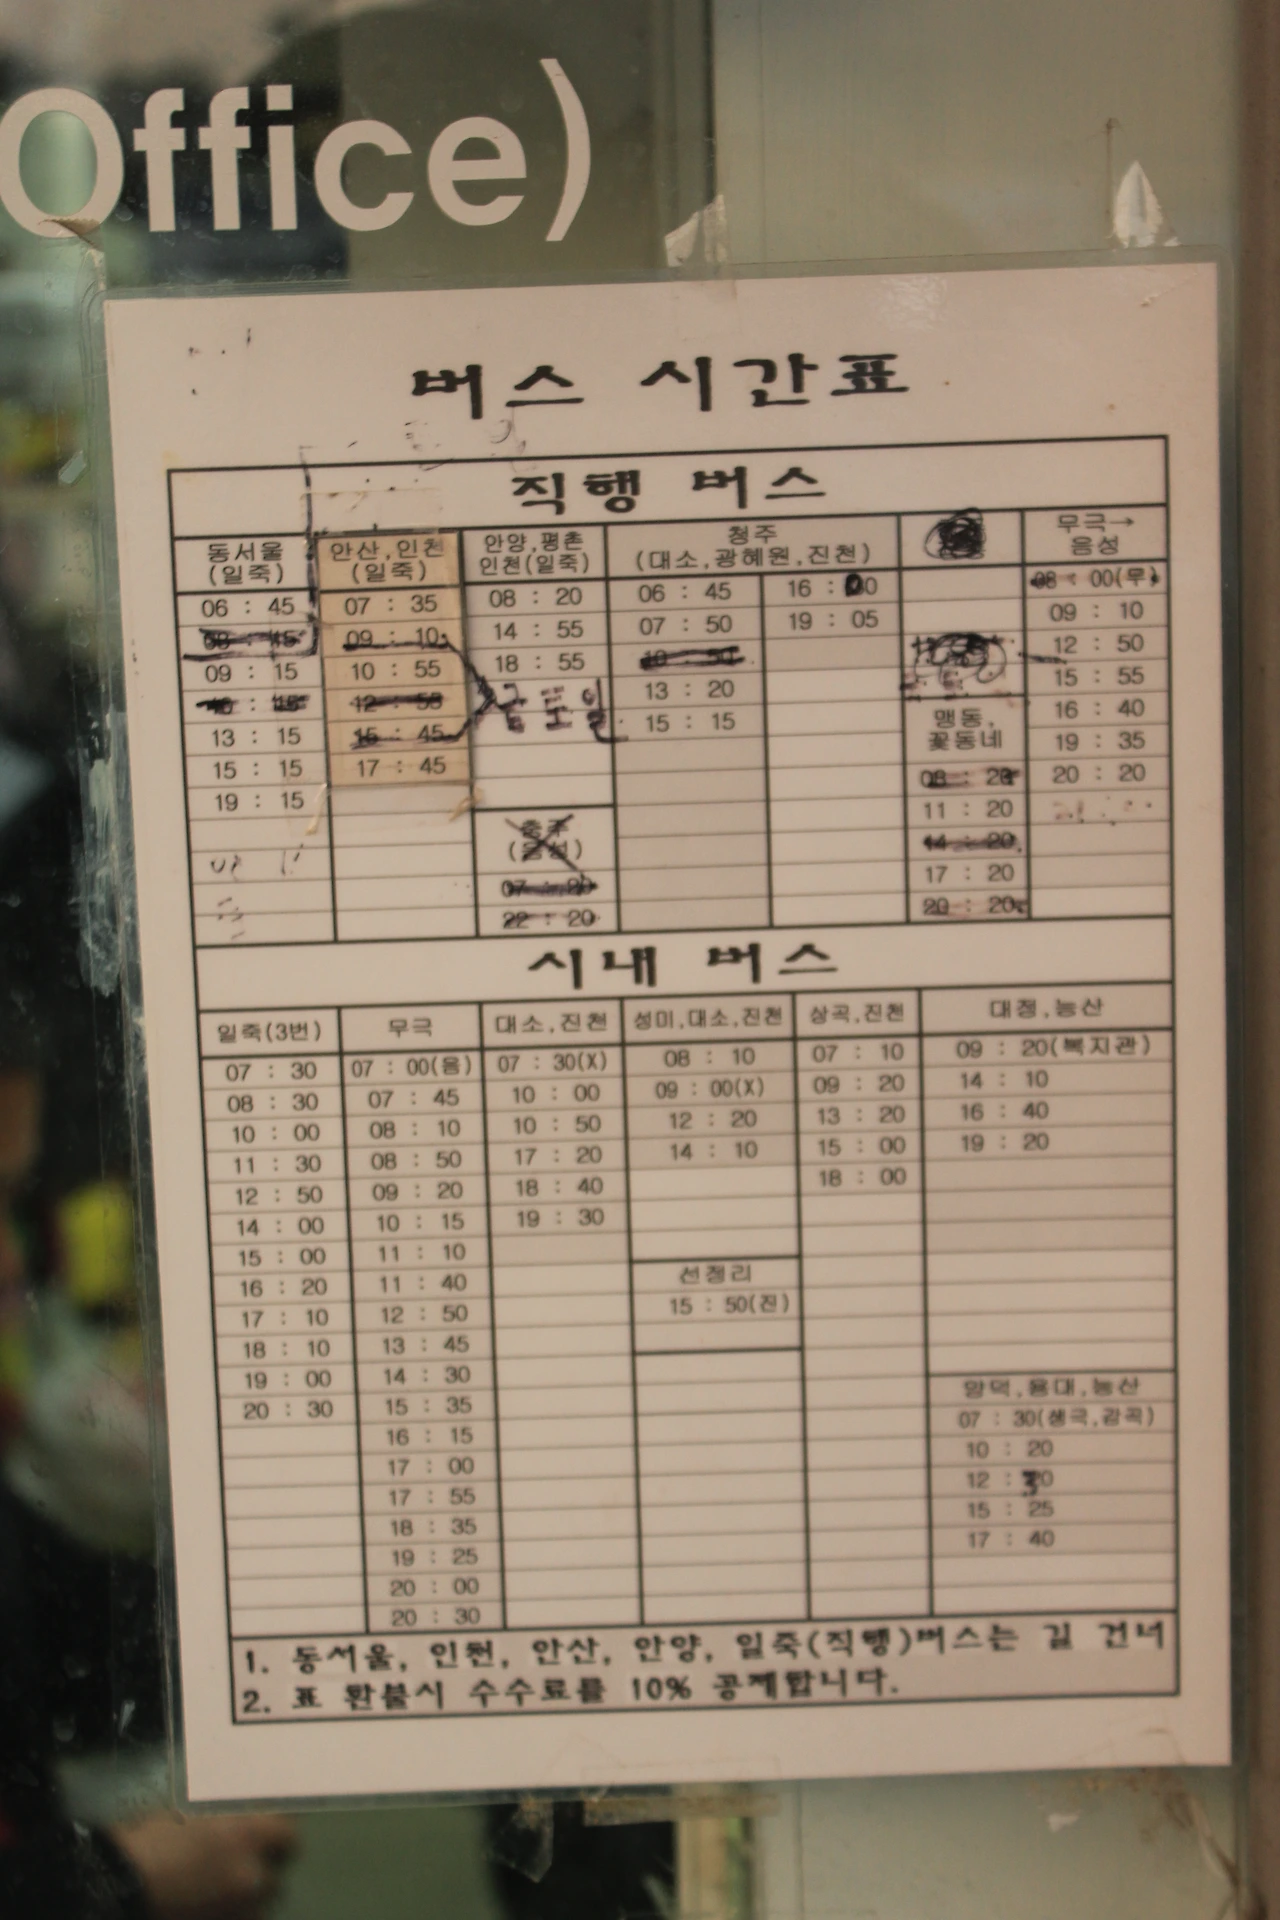 Office)
버스 시간표
직행 버스
동서울
(일죽)
06 : 45
09 : 15
13 : 15
15 : 15
19 : 15
안산,인천
(일죽)
07 : 35
09 : 10
10 : 55
12 : 55
15 : 45
17 : 45
금토일
안양,평촌
인천(일죽)
08 : 20
14 : 55
18 : 55
충주
(음성)
07 : 20
22 : 20
청주
(대소,광혜원,진천)
06 : 45
07 : 50
10 : 50
13 : 20
15 : 15
16 : 00
19 : 05
맹동,
꽃동네
08 : 20
11 : 20
14 : 20
17 : 20
20 : 20
무극→
음성
08 : 00(무)
09 : 10
12 : 50
15 : 55
16 : 40
19 : 35
20 : 20
시내 버스
일죽(3번)
07 : 30
08 : 30
10 : 00
11 : 30
12 : 50
14 : 00
15 : 00
16 : 20
17 : 10
18 : 10
19 : 00
20 : 30
무극
07 : 00(음)
07 : 45
08 : 10
08 : 50
09 : 20
10 : 15
11 : 10
11 : 40
12 : 50
13 : 45
14 : 30
15 : 35
16 : 15
17 : 00
17 : 55
18 : 35
19 : 25
20 : 00
20 : 30
대소,진천
07 : 30(X)
10 : 00
10 : 50
17 : 20
18 : 40
19 : 30
성미,대소,진천
08 : 10
09 : 00(X)
12 : 20
14 : 10
선정리
15 : 50(진)
상곡,진천
07 : 10
09 : 20
13 : 20
15 : 00
18 : 00
대정,능산
09 : 20(복지관)
14 : 10
16 : 40
19 : 20
양덕,용대,능산
07 : 30(생극,감곡)
10 : 20
12 : 30
15 : 25
17 : 40
1. 동서울, 인천, 안산, 안양, 일죽(직행)버스는 길 건너
2. 표 환불시 수수료를 10% 공제합니다.